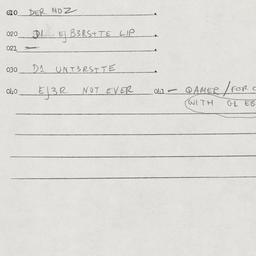 010 DER MOZ
020 D1 EJ B3RS+TE LIP
021 —
030 D1 UNT3RSTTE
040 EJ3R NOT EVER 041 — QAMER/FOR
WITH GL